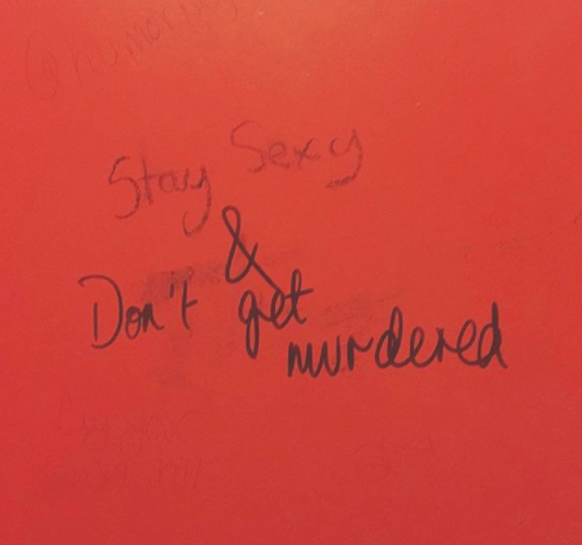 Stay Sexy
&
Don't get
murdered